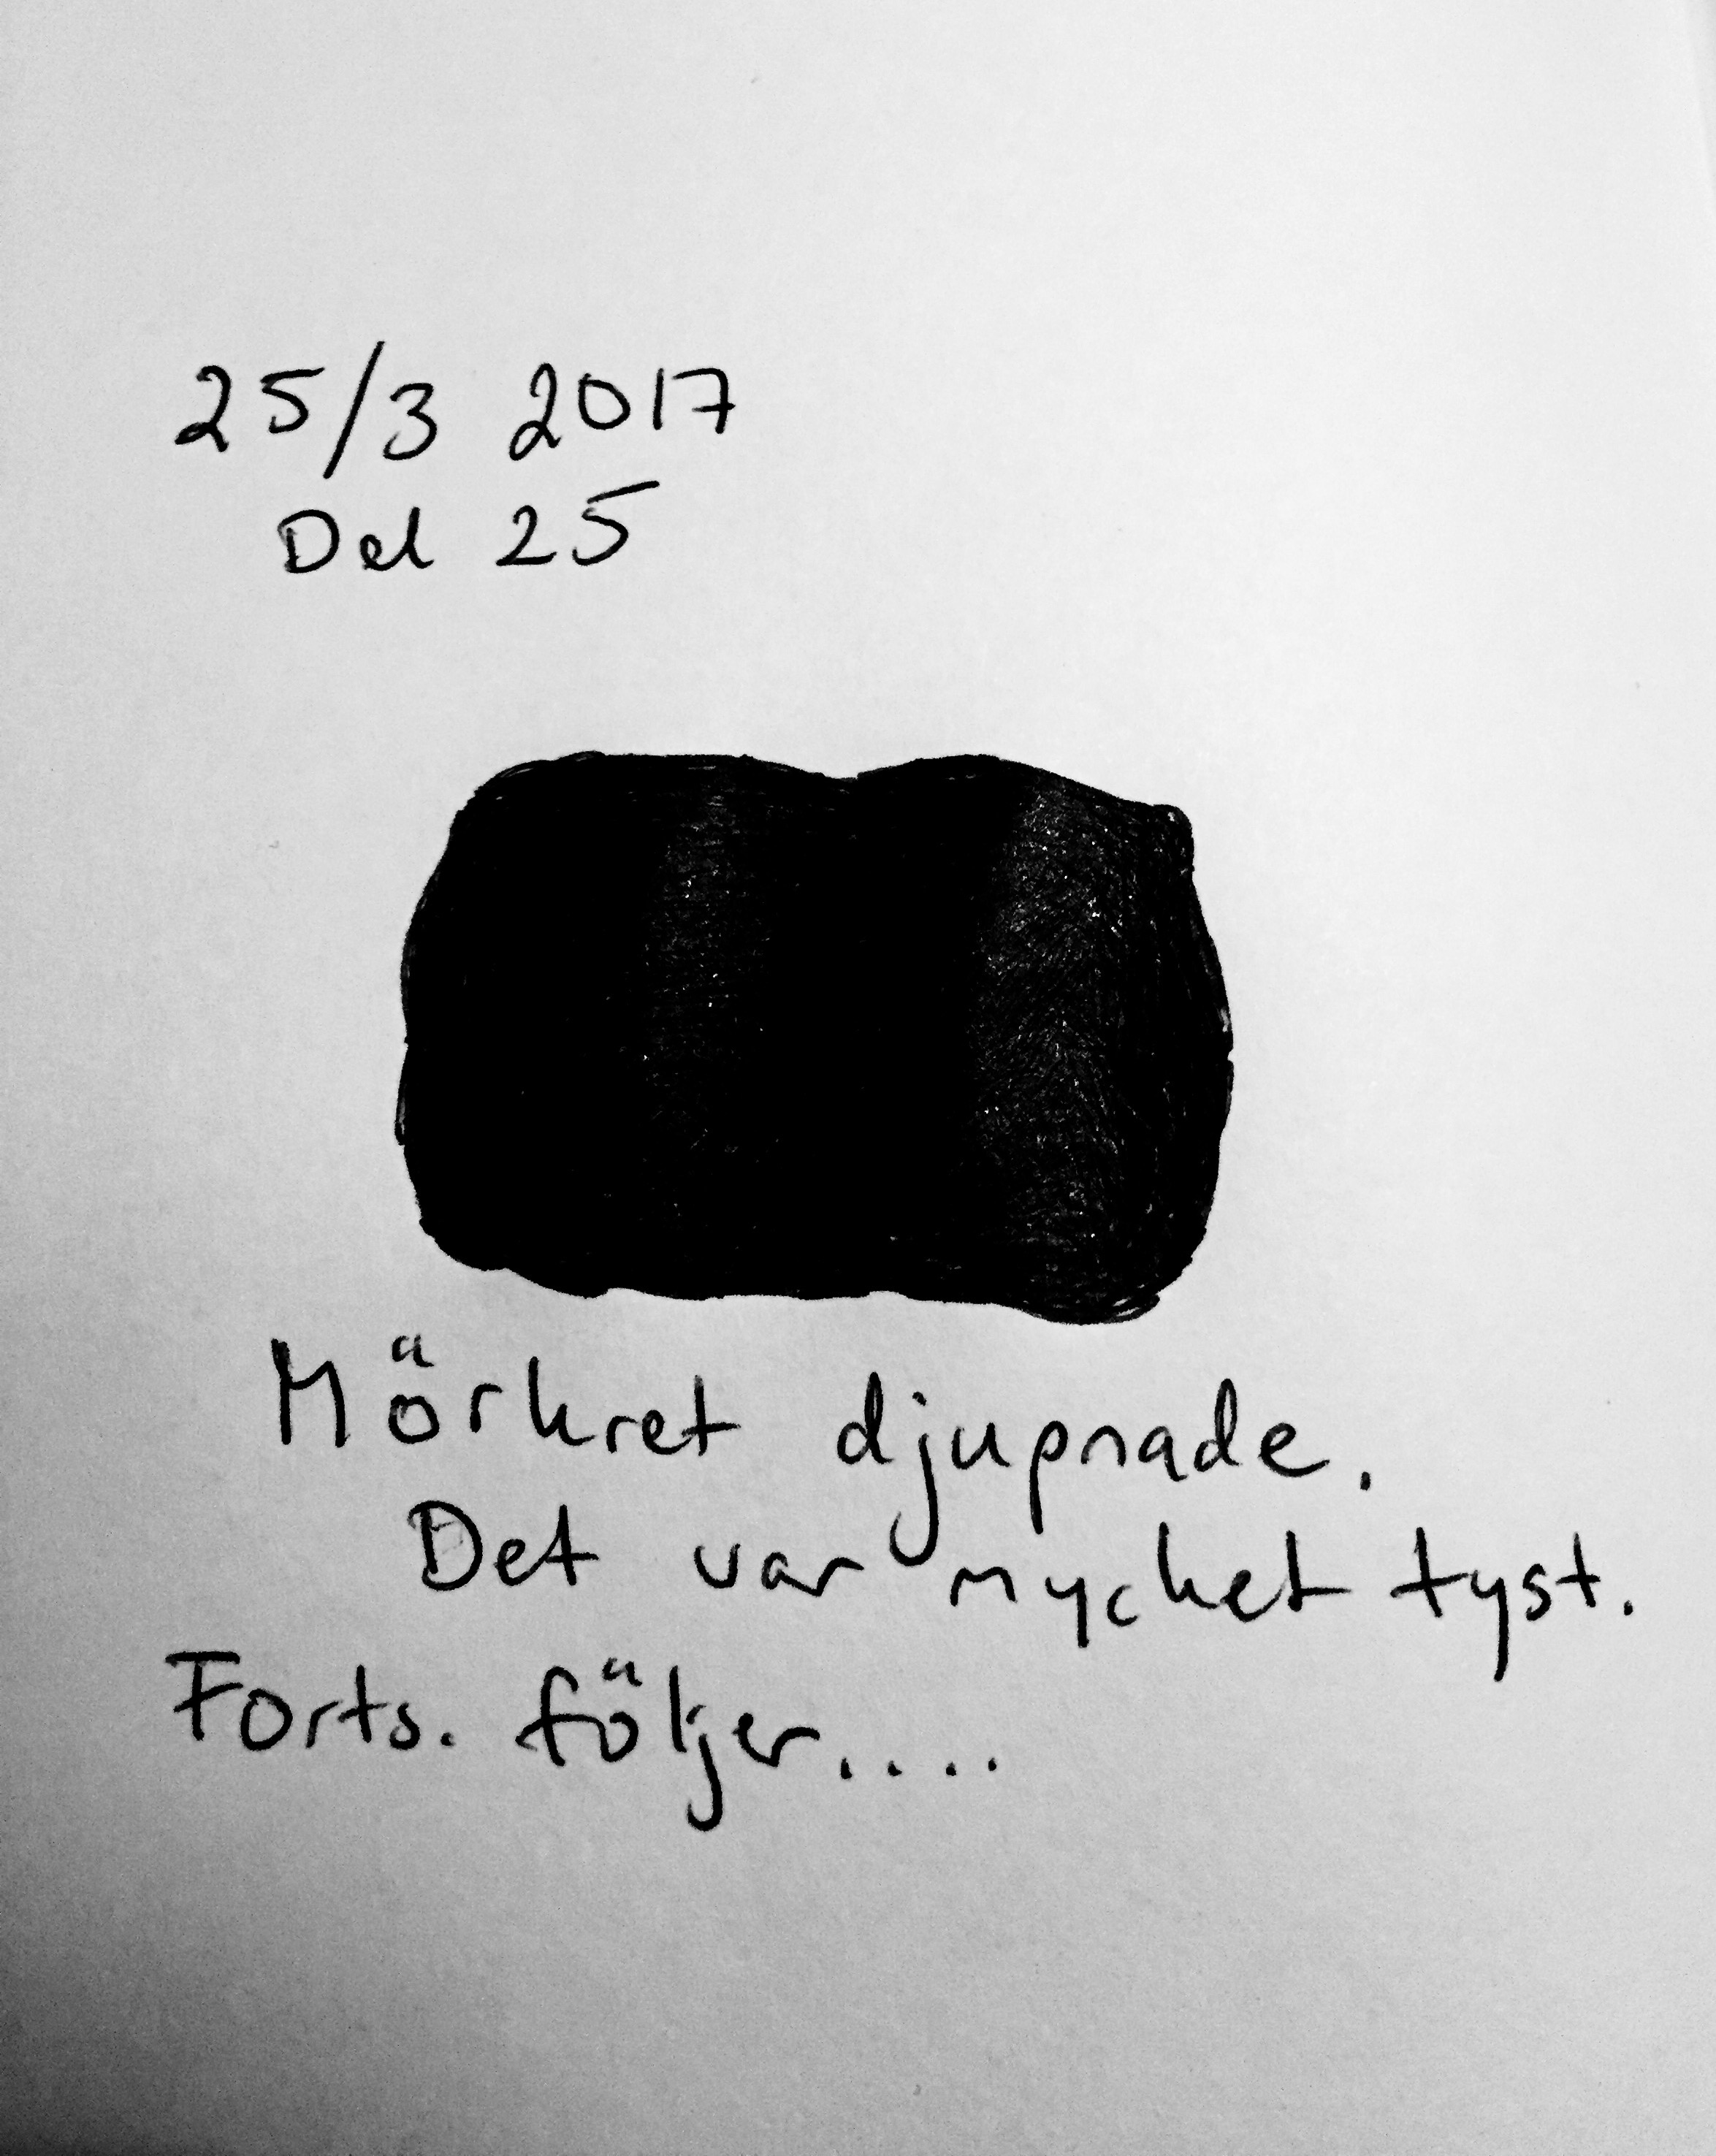 25/3 2017
Del 25
Mörkret djupnade.
Det var mycket tyst.
Forts. följer....